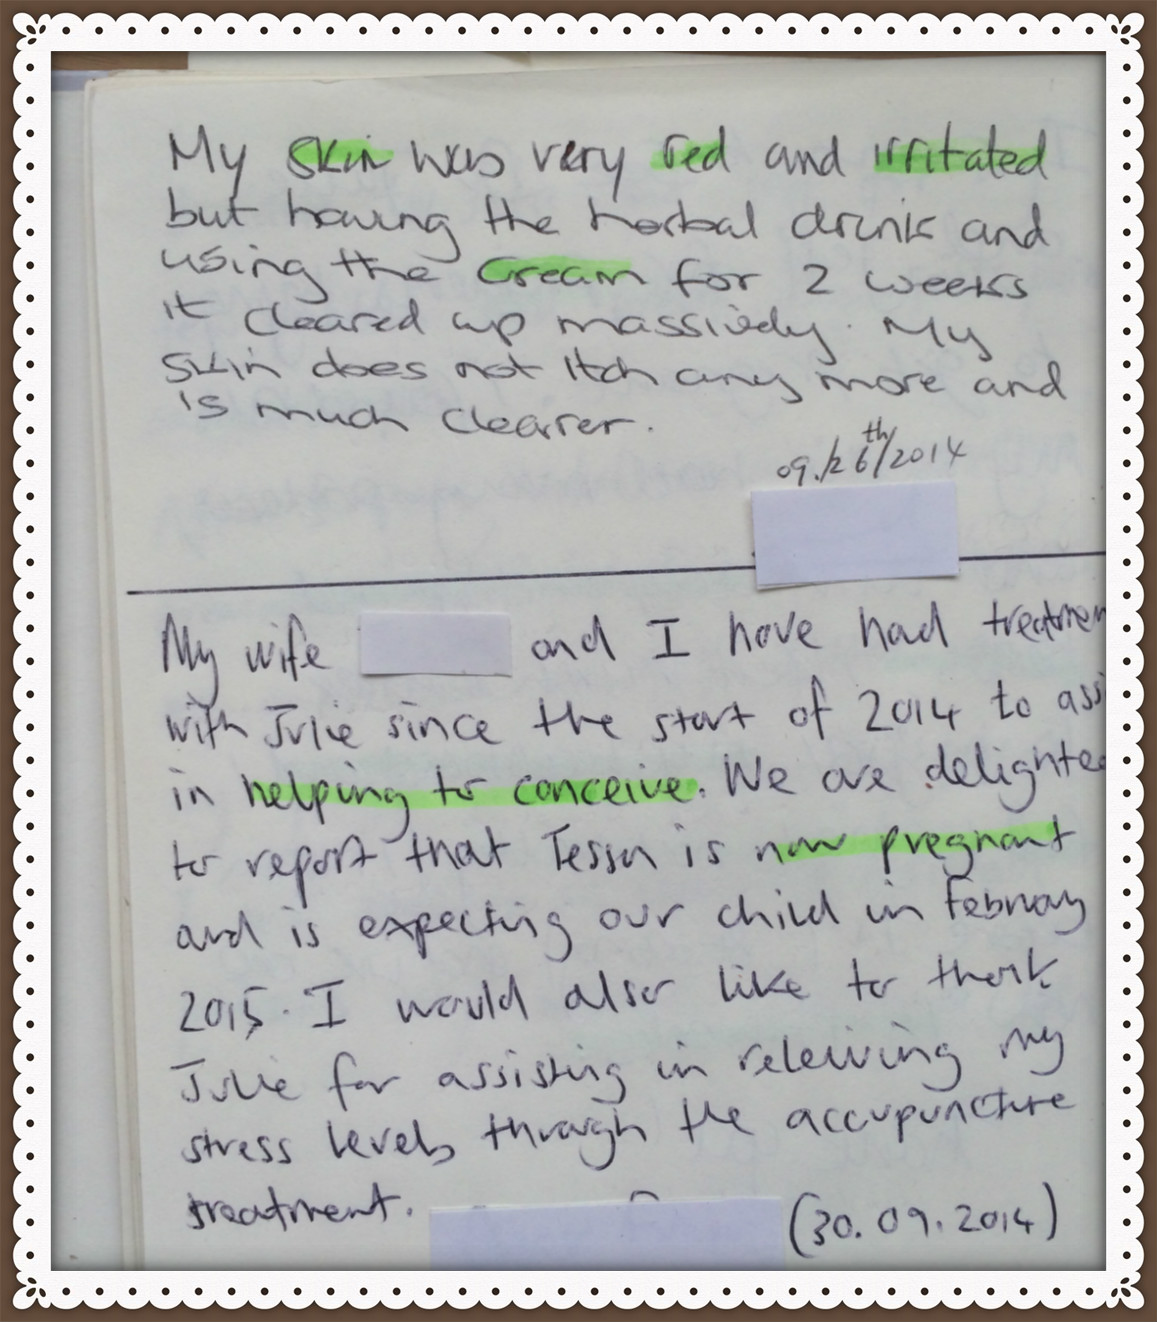 My skin was very red and irritated
but having the herbal drink and
using the cream for 2 weeks
it cleared up massively. My
skin does not itch any more and
is much clearer.
09./26th/2014
My wife and I have had treatmen
with Julie since the start of 2014 to assi
in helping to conceive. We are delighted
to report that Tessa is now pregnant
and is expecting our child in February
2015. I would also like to thank
Julie for assisting in releiving my
stress levels through the accupuncture
treatment.
(30.09.2014)